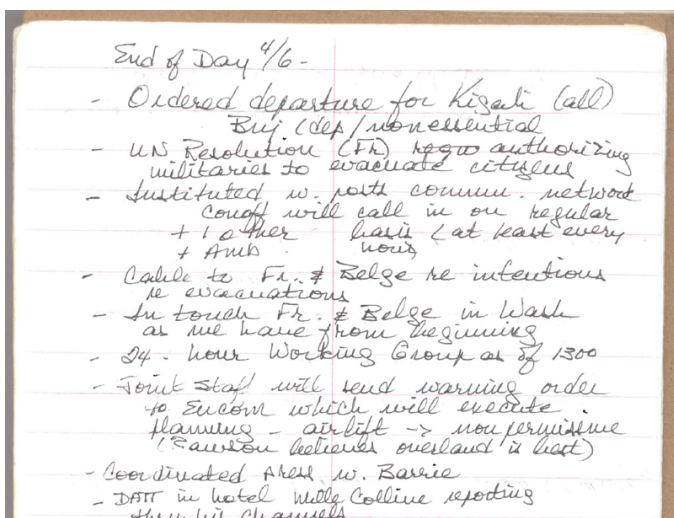 End of Day 4/6 -
- Ordered departure for Kigali (all)
Buj (dep/nonessential
- UN Resolution (Fr) authorizing
militaries to evacuate citizens
- Instituted w. posts commun. network
conoff will call in on regular
+ 1 other basis (at least every
+ Amb. hour)
- Cable to Fr. & Belge re intentions
re evacuations
- In touch Fr. & Belge in Wash
as we have from beginning
- 24-hour Working Group as of 1300
- Joint Staff will send warning order
to Eucom which will execute
planning - airlift -> nonpermissive
(Rawson believes overland is best)
- Coordinated press w. Barrie
- DATT in hotel Mille Colline reporting
thru his channels